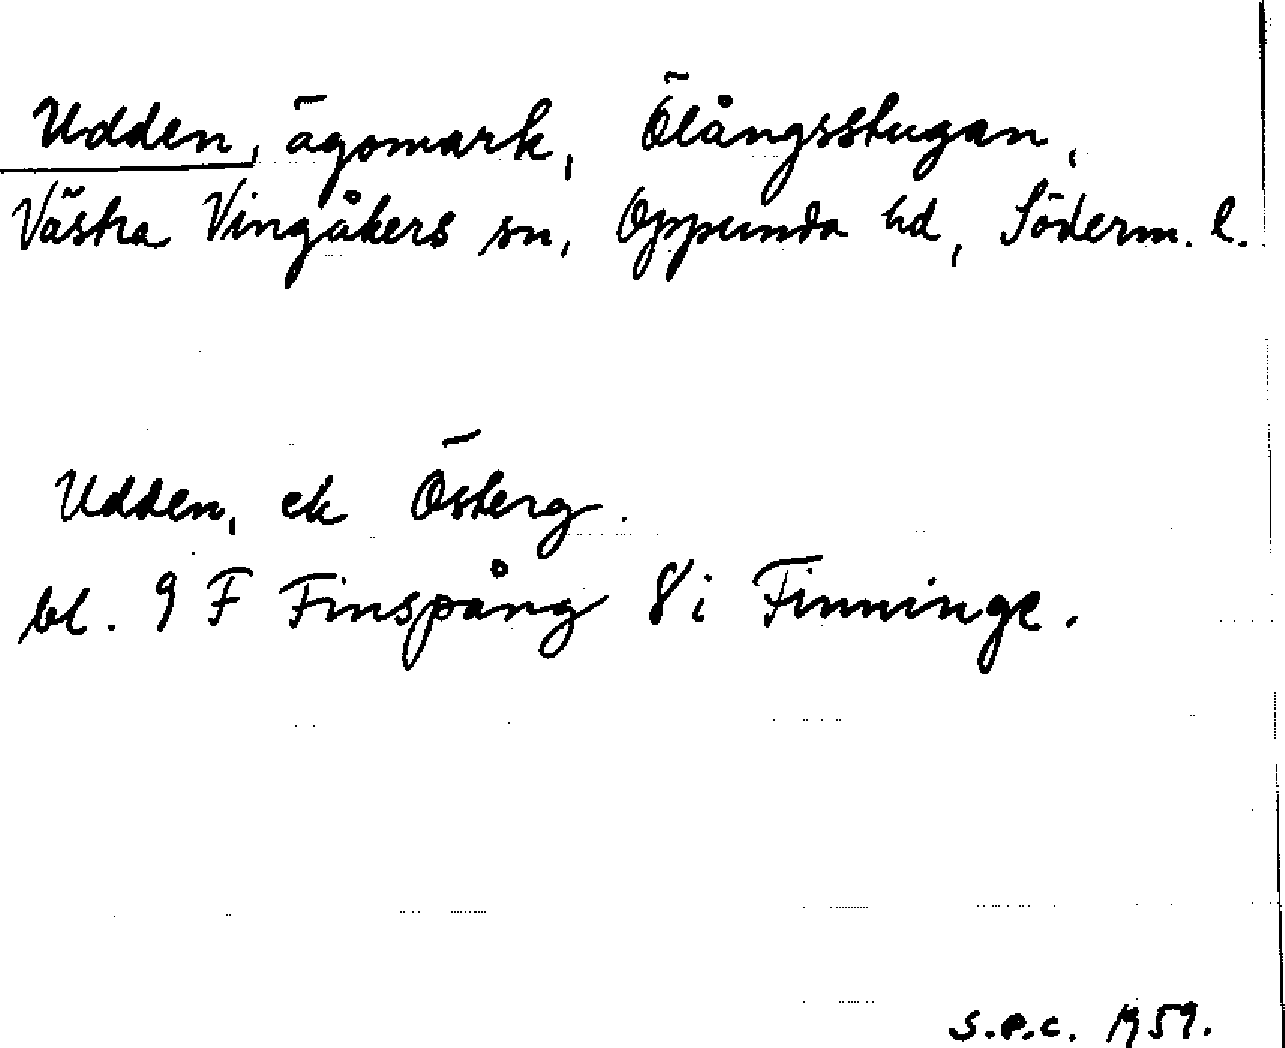 Udden, ägomark, Ölångsstugan,
Västra Vingåkers sn, Oppunda hd, Söderm. l.
Udden, ek Österg.
bl. 9 F Finspång 8 i Finninge.
s.e.c. 1959.